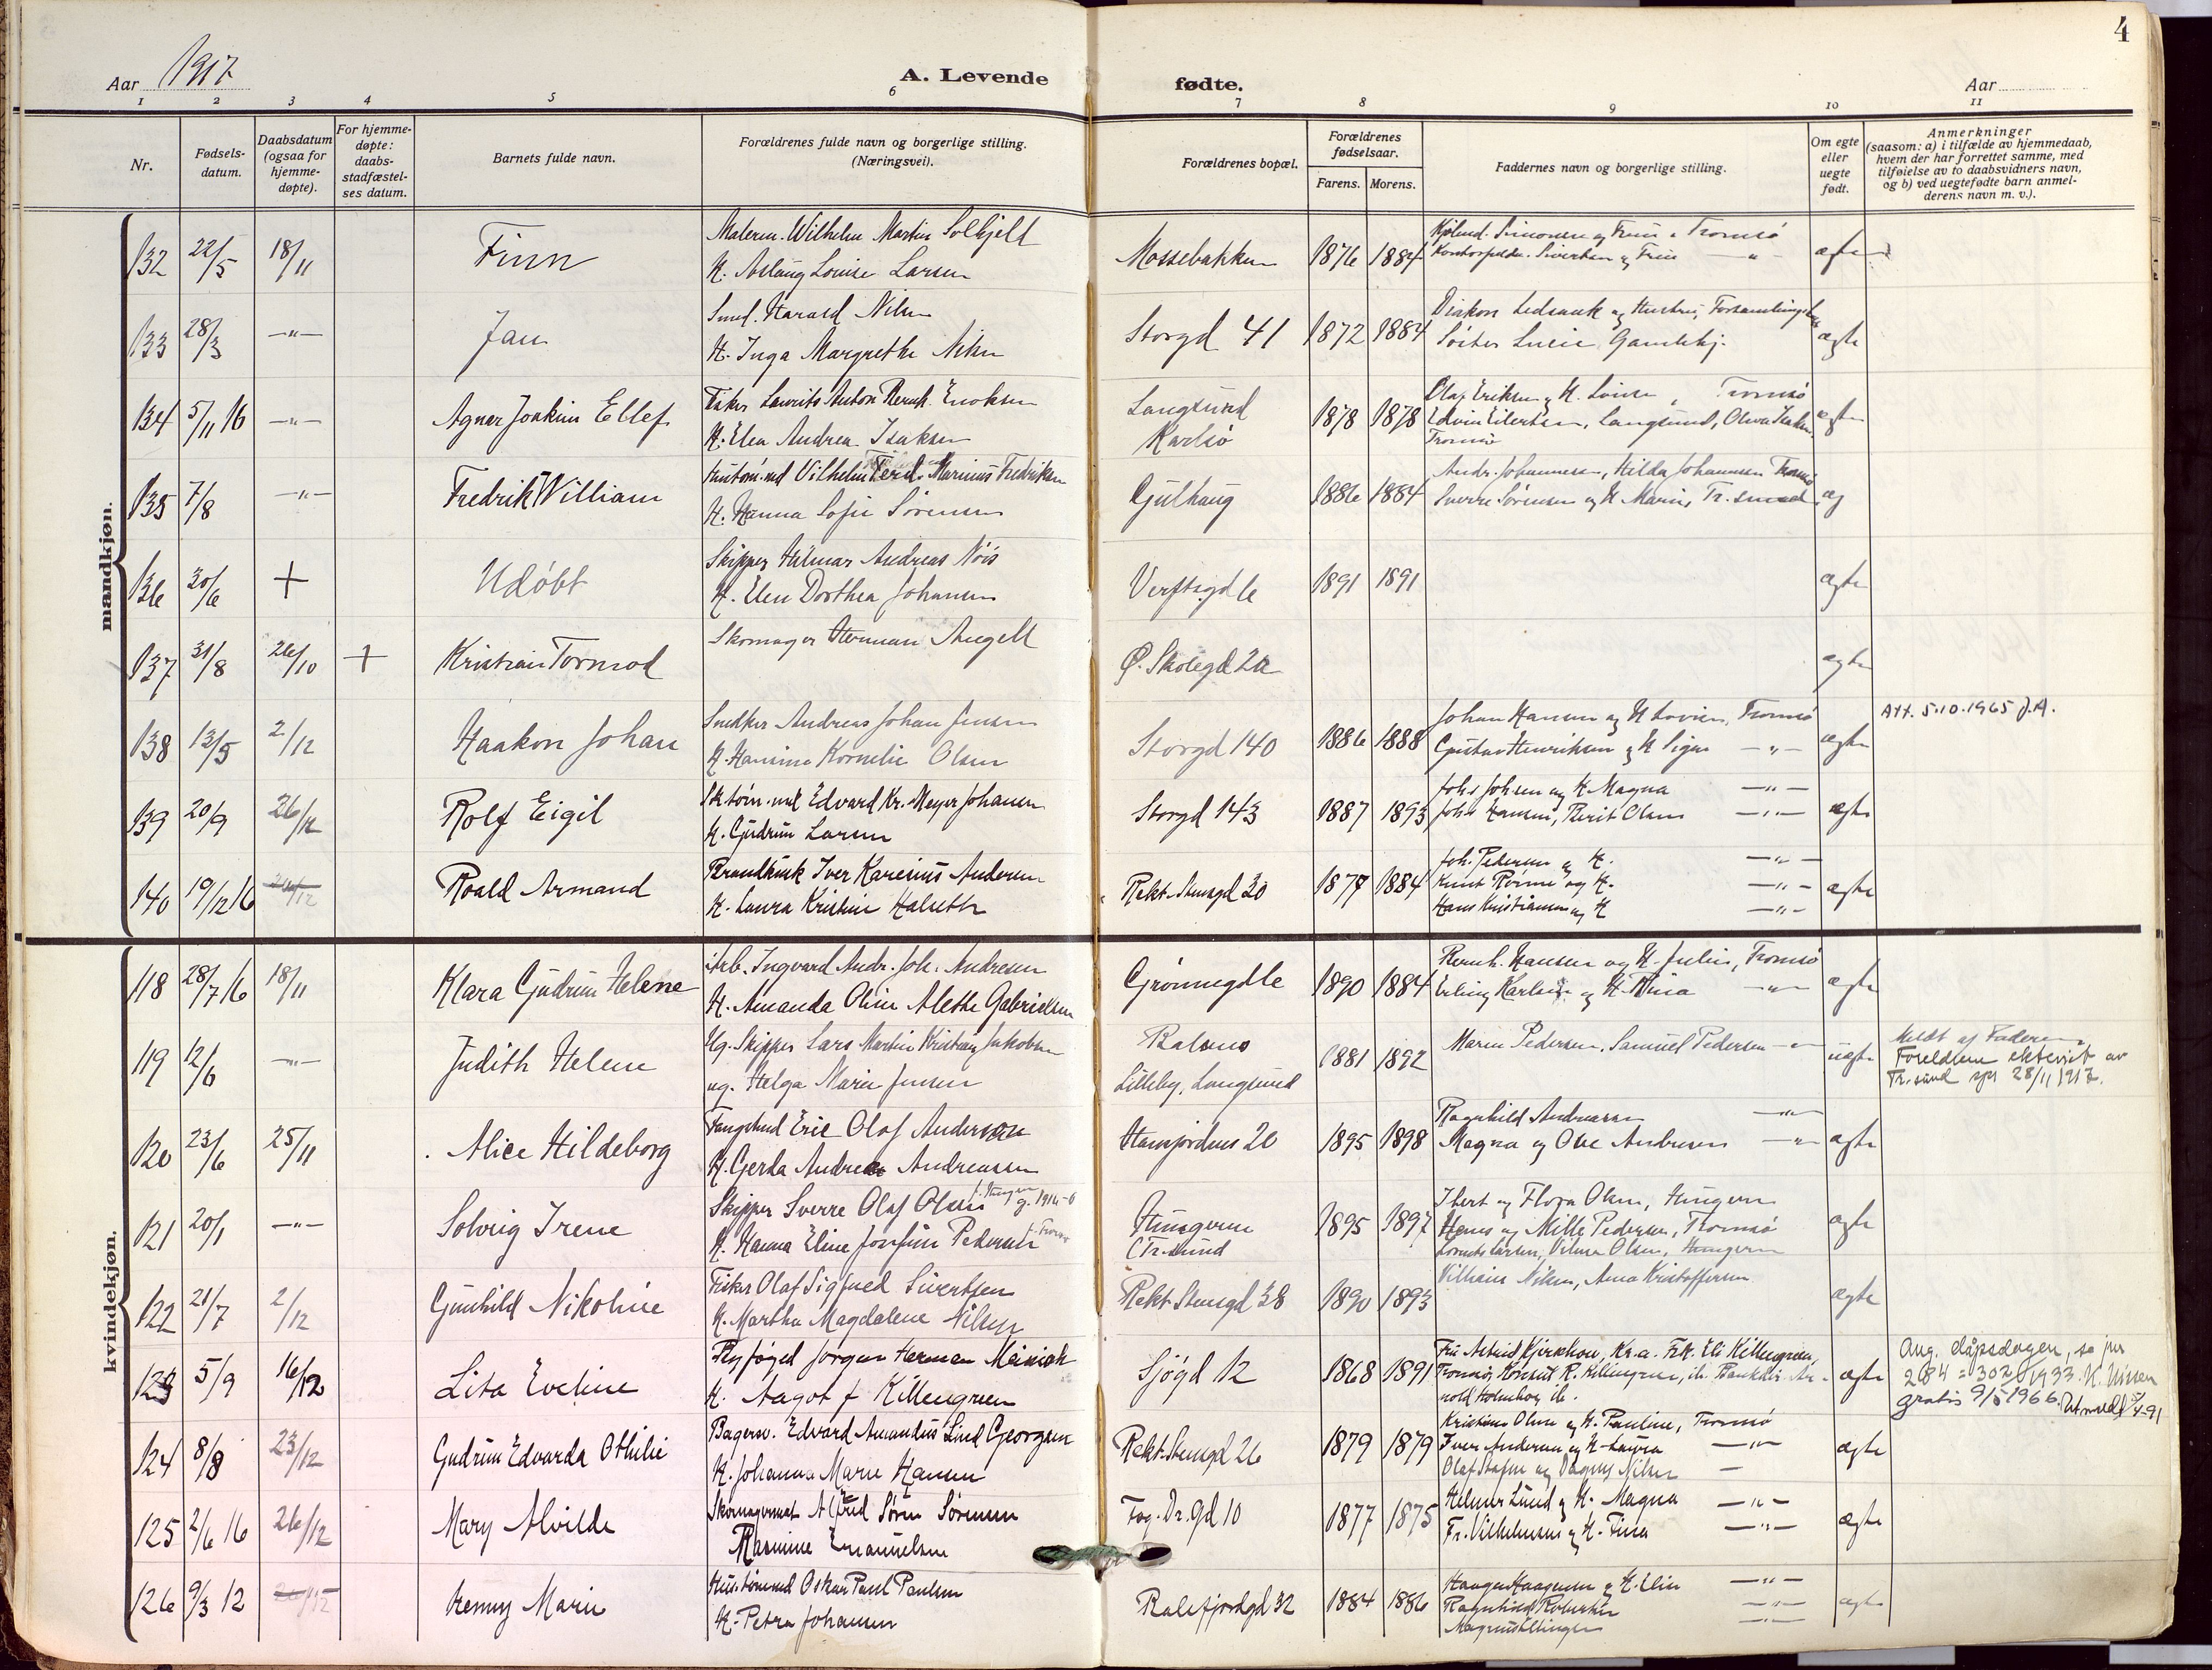 4
Aar 1917
A. Levende fødte.
Aar
1 2 3 4 5 6 7 8 9 10 11
Nr.
Fødsels-
datum.
Daabsdatum
(ogsaa for
hjemme-
døpte).
For hjemme-
døpte:
daabs-
stadfæstel-
ses datum.
Barnets fulde navn.
Forældrenes fulde navn og borgerlige stilling.
(Næringsvei).
Forældrenes bopæl.
Forældrenes
fødselsaar.
Farens. Morens.
Faddernes navn og borgerlige stilling.
Om egte
eller
uegte
født.
Anmerkninger
(saasom: a) i tilfælde av hjemmedaab,
hvem der har forrettet samme, med
tilføielse av to daabsvidners navn,
og b) ved uegtefødte barn anmel-
derens navn m. v.).
mandkjøn.
132 22/5 18/11 Finn
Malerm. Wilhelm Martin Solhjelt
H. Aslaug Louise Larsen
Mossebakken 1876 1884
133 28/3 —"— Jan
Smed. Harald Nilsen
H. Inga Margrethe Nilsen
Storgd 41 1872 1884
Diakon Ledsaak og Hustru, Forsamlingshus
Søster Lucie Gamlehj.
ægte
134 5/11 16 —"— Agner Joakim Ellef
Fisker Laurits Anton Bernh. Enoksen
H. Elen Andrea Isaksen
Langsund
Karlsø
1878 1878
Olaf Eriksen & H. Lovise, Tromsø
Edvin Eilertsen, Langsund, Oluva Isaksen,
Tromsø
ægte
135 7/8 —"— Fredrik William
Vilhelm Ferd. Marinius Fredriksen
H. Hanna Sofie Sørensen
Gulhaug 1886 1884
Andr. Johannesen, Hilda Johannesen Tromsø
Sverre Sørensen og H. Marie, Tr.sund
æg
136 30/6 + Udøbt
Skipper Hilmar Andreas Nøis
H. Elen Dorthea Johansen
Verftsgd 6 1891 1891
ægte
137 31/8 26/10 + Kristian Tormod
Skomager Herman Angell
Ø. Skolegd 2a
ægte
138 13/5 2/12 Haakon Johan
Snedker Andreas Johan Jensen
H. Hansine Kornelie Olsen
Storgd 140 1886 1888
Johan Hansen og H Lovise, Tromsø
Gustav Henriksen og H Signe —"—
ægte
Att. 5.10.1965 J.A.
139 20/9 26/12 Rolf Eigil
Edvard Kr. Meyer Johansen
H. Gudrun Larsen
Storgd 143 1887 1893
Johs Johnsen og H. Magna —"—
Johs Hansen, Berit Olsen —"—
ægte
140 19/12 16 26/12 Roald Armand
Brandkusk Iver Karenius Andersen
H. Laura Kristine Halseth
Rekt. Steensgd 30 1877 1884
Joh. Pedersen og H. —"—
Knut Rønne og H. —"—
Hans Kristiansen og H —"—
ægte
kvindekjøn.
118 28/7 16 18/11 Klara Gudrun Helene
Arb. Ingvard Andr. Joh. Andresen
H. Amanda Oline Alethe Gabrielsen
Grønnegd 6 1890 1884
Bernh. Hansen og H. Julie, Tromsø
Erling Karlsen og H. Thina —"—
ægte
119 12/6 —"— Judith Helene
Ug. Skipper Lars Martin Kristian Jakobsen
ug. Helga Marie Jensen
Lilleby, Langsund
1881 1892
Marie Pedersen, Samuel Pedersen —"—
uægte
Meldt af Faderen.
Foreldrene ektevist av
Tr.sund spr 28/11 1917.
120 23/6 25/11 Alice Hildeborg
Fangstmd Eric Olaf Anderson
H. Gerda Andrea Andreassen
1895 1898
Ragnhild Andreassen —"—
Magna og Ove Andresen —"—
ægte
121 20/1 —"— Solveig Irene
Skipper Sverre Olaf Olsen
H. Hanna Eline Josefine Pedersen
Hungeren
(Tr.sund
1895 1897
Ibert og Flora Olsen, Hungeren
Hans og Mille Pedersen, Tromsø
Lorents Larsen, Vilma Olsen, Hungeren
ægte
122 21/7 2/12 Gunhild Nikoline
Fisker Olaf Sigfred Sivertsen
H. Martha Magdalene Nilsen
Rekt. Steensgd 38 1890 1893
Vilhain Nilsen, Anna Kristoffersen
ægte
123 5/9 16/12 Lita Eveline
Byfoged Jørgen Herman Meinich
H. Aagot f Killengreen
Sjøgd 12 1868 1891
Fru Astrid Kjerkhow, Kr.a. Frk. Eli Killengreen,
Tromsø, Konsul R. Killengreen, ib. Bankkas. Ar-
nold Holmboe ib.
ægte
Ang. dåpsdagen, se jnr
284 - 302/1933. K. Nissen
gratis 9/5 1966.
124 8/8 23/12 Gudrun Edvarda Othilie
Bagerm. Edvard Amandus Lind Georgsen
H. Johanna Marie Hansen
Rekt. Steensgd 26 1879 1879
Kristian Olsen og H. Pauline, Tromsø
Iver Andersen og H. Laura —"—
Olaf Stafne og Dagny Nilsen —
ægte
125 2/6 16 26/12 Mary Alvilde
Skomagermest Alfred Søren Sørensen
Rasmine Emanuelsen
Fog. Dr. gd 10 1877 1875
Helmer Lund og H. Magna —"—
Fr. Vilhelmsen og H. Fina —"—
ægte
126 9/3 12 Kenny Marie
Oskar Paul Paulsen
H. Petra Johansen
Balsfjordgd 32 1884 1886
Haagen Haagensen og H. Elin —"—
Ragnhild Robertsen —"—
Magnus Ellingsen —"—
ægte